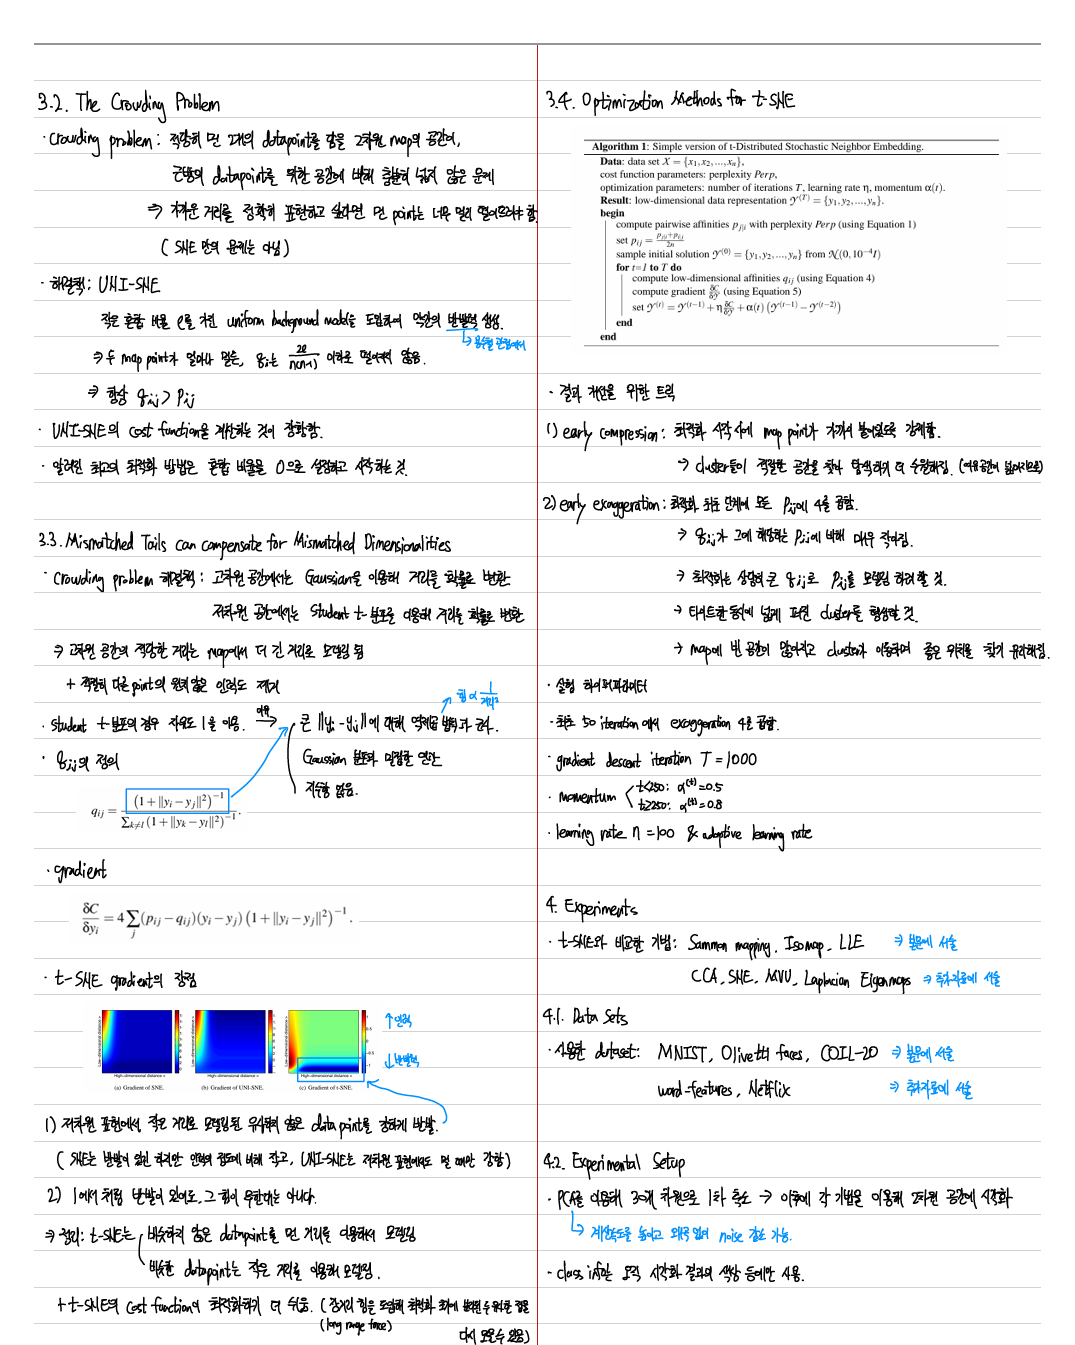 3.2. The Crowding Problem
· Crowding problem : 적당히 먼 2개의 datapoint를 담을 2차원 map의 공간이,
근방의 datapoint를 위한 공간에 비해 충분히 넓지 않은 문제
⇒ 가까운 거리를 정확히 표현하고 싶다면 먼 point는 너무 멀리 떨어뜨려야 함
( SNE 만의 문제는 아님 )
· 해결책 : UNI-SNE
작은 혼합 비율 ρ를 가진 uniform background model을 도입하여 약간의 반발력 생성.
⇒ 두 map point가 얼마나 멀든, qij는 2ρ / n(n-1) 이하로 떨어지지 않음.
⇒ 항상 qij > pij
· UNI-SNE의 cost function을 계산하는 것이 장황함.
· 알려진 최고의 최적화 방법은 혼합 비율을 0으로 설정하고 시작하는 것.
3.3. Mismatched Tails can compensate for Mismatched Dimensionalities
· Crowding problem 해결책 : 고차원 공간에서는 Gaussian을 이용해 거리를 확률로 변환
저차원 공간에서는 Student t-분포를 이용해 거리를 확률로 변환
⇒ 고차원 공간의 적당한 거리는 map에서 더 긴 거리로 모델링 됨
+ 적절히 다른 point의 원치 않은 인력도 제거
힘 ∝ 1 / 거리²
· Student t-분포의 경우 자유도 1을 이용. 이유 → 큰 ||yi - yj||에 대해 역제곱 법칙과 근사.
Gaussian 분포와 밀접한 연관
지수항 없음.
· qij의 정의
qij = (1 + ||yi − yj||²)⁻¹ / Σk≠l (1 + ||yk − yl||²)⁻¹ .
· gradient
δC/δyi = 4 Σj (pij − qij)(yi − yj) (1 + ||yi − yj||²)⁻¹ .
· t-SNE gradient의 장점
↑ 인력
↓ 반발력
Low-dimensional distance
High-dimensional distance
(a) Gradient of SNE. (b) Gradient of UNI-SNE. (c) Gradient of t-SNE.
1) 저차원 표현에서 작은 거리로 모델링 된 유사하지 않은 data point를 강하게 반발.
( SNE는 반발이 있긴 하지만 인력의 정도에 비해 작고, UNI-SNE는 저차원 표현에서도 멀 때만 강함 )
2) 1에서 처럼 반발이 있어도, 그 힘이 무한대는 아니다.
⇒ 정리 : t-SNE는 비슷하지 않은 datapoint를 먼 거리를 이용해서 모델링
비슷한 datapoint는 작은 거리를 이용해 모델링.
+ t-SNE의 cost function이 최적화하기 더 쉬움.
(long range force)
다시 모을 수 있음 )
3.4. Optimization Methods for t-SNE
Algorithm 1: Simple version of t-Distributed Stochastic Neighbor Embedding.
Data: data set X = {x1, x2, ..., xn},
cost function parameters: perplexity Perp,
optimization parameters: number of iterations T, learning rate η, momentum α(t).
Result: low-dimensional data representation 𝒴(T) = {y1, y2, ..., yn}.
begin
compute pairwise affinities pj|i with perplexity Perp (using Equation 1)
set pij = (pj|i + pi|j) / 2n
sample initial solution 𝒴(0) = {y1, y2, ..., yn} from 𝒩(0, 10⁻⁴I)
for t=1 to T do
compute low-dimensional affinities qij (using Equation 4)
compute gradient δC/δ𝒴 (using Equation 5)
set 𝒴(t) = 𝒴(t−1) + η δC/δ𝒴 + α(t) (𝒴(t−1) − 𝒴(t−2))
end
end
· 결과 개선을 위한 트릭
1) early compression : 최적화 시작 시에 map point가 가까이 붙어있도록 강제함.
→ cluster들이 적절한 공간을 찾아 탐색하기 더 수월해짐.
2) early exaggeration : 최적화 최초 단계에 모든 pij에 4를 곱함.
→ qij가 그에 해당하는 pij에 비해 매우 작아짐.
→ 최적화는 상당히 큰 qij로 pij를 모델링 하려 할 것.
→ 타이트한 동시에 넓게 퍼진 cluster를 형성할 것.
→ map에 빈 공간이 많아지고 cluster가 이동하며 좋은 위치를 찾기 유리해짐.
· 실험 하이퍼파라미터
· 최초 50 iteration에서 exaggeration 4를 곱함.
· gradient descent iteration T = 1000
· momentum t<250 : α(t) = 0.5
t≥250 : α(t) = 0.8
· learning rate η = 100 & adaptive learning rate
4. Experiments
· t-SNE와 비교한 기법 : Sammon mapping, Isomap, LLE ⇒ 본문에 서술
CCA, SNE, MVU, Laplacian Eigenmaps ⇒ 추가자료에 서술
4.1. Data Sets
· 사용한 dataset : MNIST, Olivetti faces, COIL-20 ⇒ 본문에 서술
word-features, Netflix ⇒ 추가자료에 서술
4.2. Experimental Setup
· PCA를 이용해 30개 차원으로 1차 축소 → 이후에 각 기법을 이용해 2차원 공간에 시각화
↳ 계산속도를 높이고 왜곡 없이 noise 감소 가능.
· class info는 오직 시각화 결과의 색상 등에만 사용.